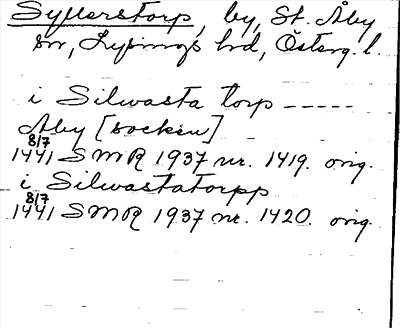 Syllerstorp, by, St. Åby
sn, Lysings hd, Österg. l.
i Silwasta torp -----
Åby [socken]
8/7
1441 SMR 1937 nr. 1419. orig.
i Silwastatorpp
8/7
1441 SMR 1937 nr. 1420. orig.